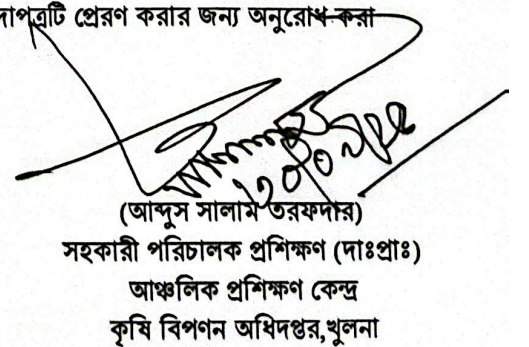 দাপত্রটি প্রেরণ করার জন্য অনুরোধ করা
(আব্দুস সালাম তরফদার)
সহকারী পরিচালক প্রশিক্ষণ (দাঃপ্রাঃ)
আঞ্চলিক প্রশিক্ষণ কেন্দ্র
কৃষি বিপণন অধিদপ্তর,খুলনা